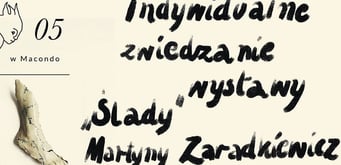 05
w Macondo
Indywidualne
zwiedzanie
wystawy
„Ślady"
Martyny Zaradkiewicz